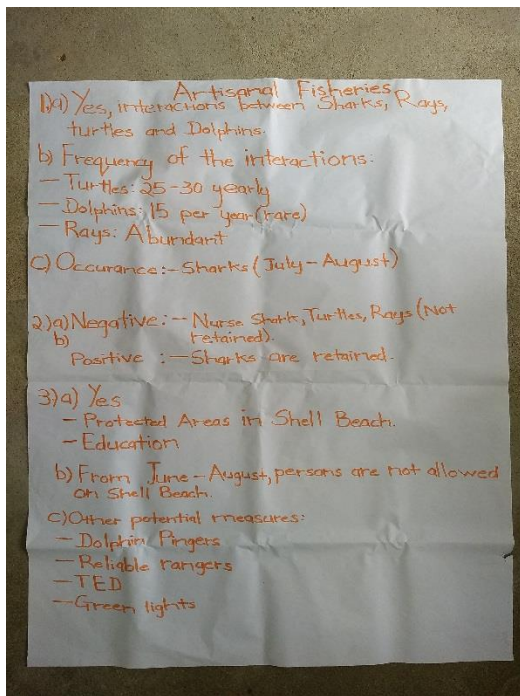 Artisanal Fisheries
1)a) Yes, interactions between Sharks, Rays,
turtles and Dolphins.
b) Frequency of the interactions:
- Turtles: 25-30 yearly
- Dolphins: 15 per year (rare)
- Rays: Abundant
c) Occurance:- Sharks (July - August)
2)a) Negative:- Nurse Shark, Turtles, Rays (Not
retained).
b)
Positive :- Sharks are retained.
3)a) Yes
- Protected Areas in Shell Beach.
- Education
b) From June - August, persons are not allowed
on Shell Beach.
c) Other potential measures:
- Dolphin Pingers
- Reliable rangers
- TED
- Green lights